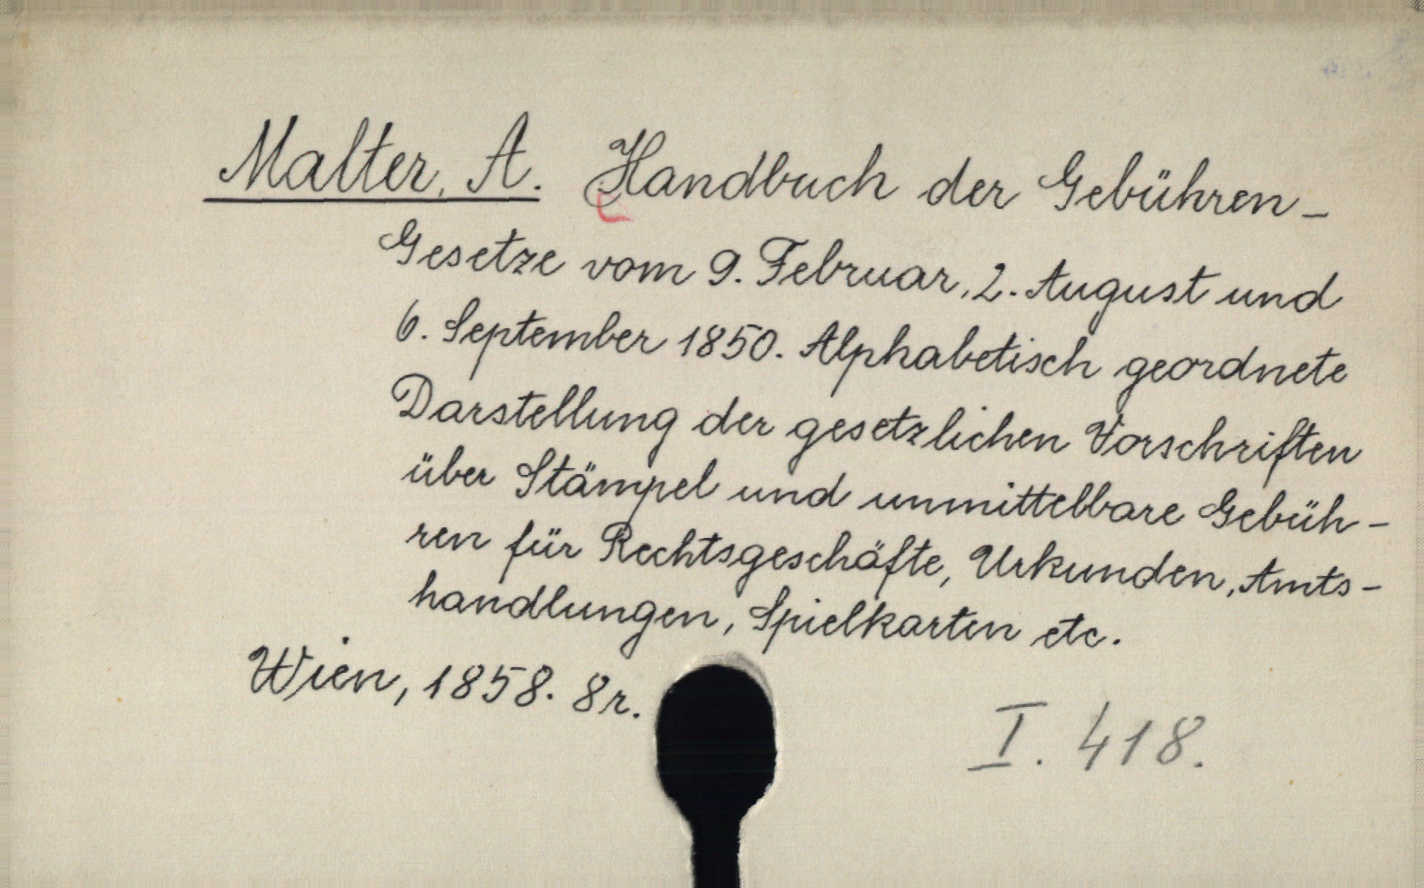 Malter, A. Handbuch der Gebühren-
Gesetze vom 9. Februar, 2. August und
6. September 1850. Alphabetisch geordnete
Darstellung der gesetzlichen Vorschriften
über Stämpel und unmittelbare Gebüh-
ren für Rechtsgeschäfte, Urkunden, Amts-
handlungen, Spielkarten etc.
Wien, 1858. 8r.
I. 418.